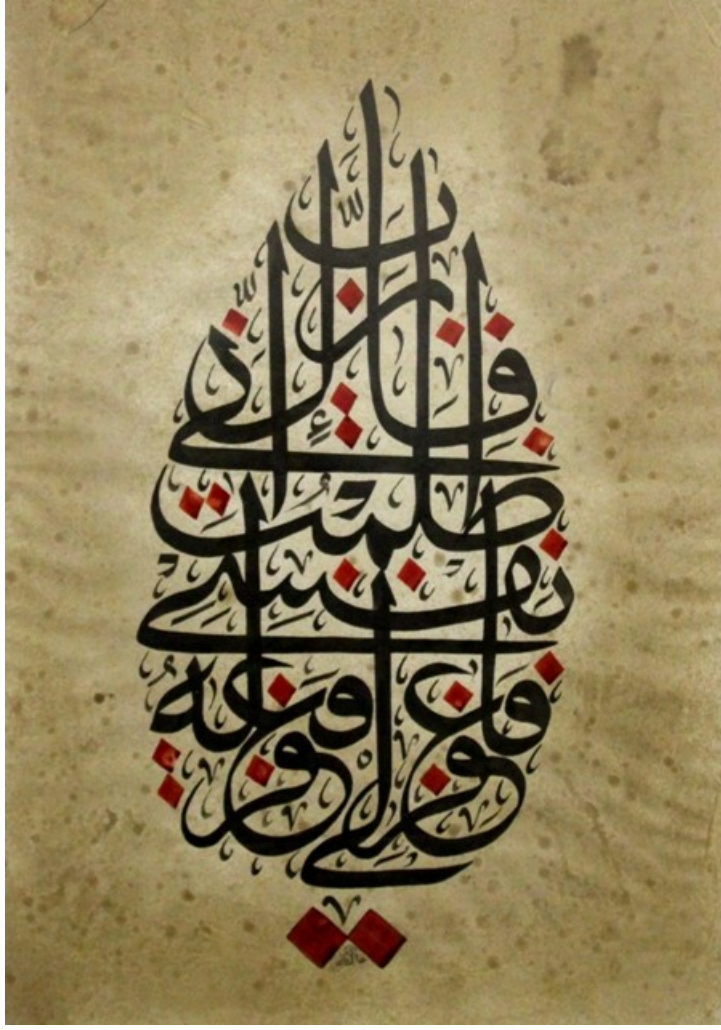 قَالَ رَبِّ إِنِّي
ظَلَمْتُ
نَفْسِي
فَاغْفِرْ لِي فَغَفَرَ لَهُ